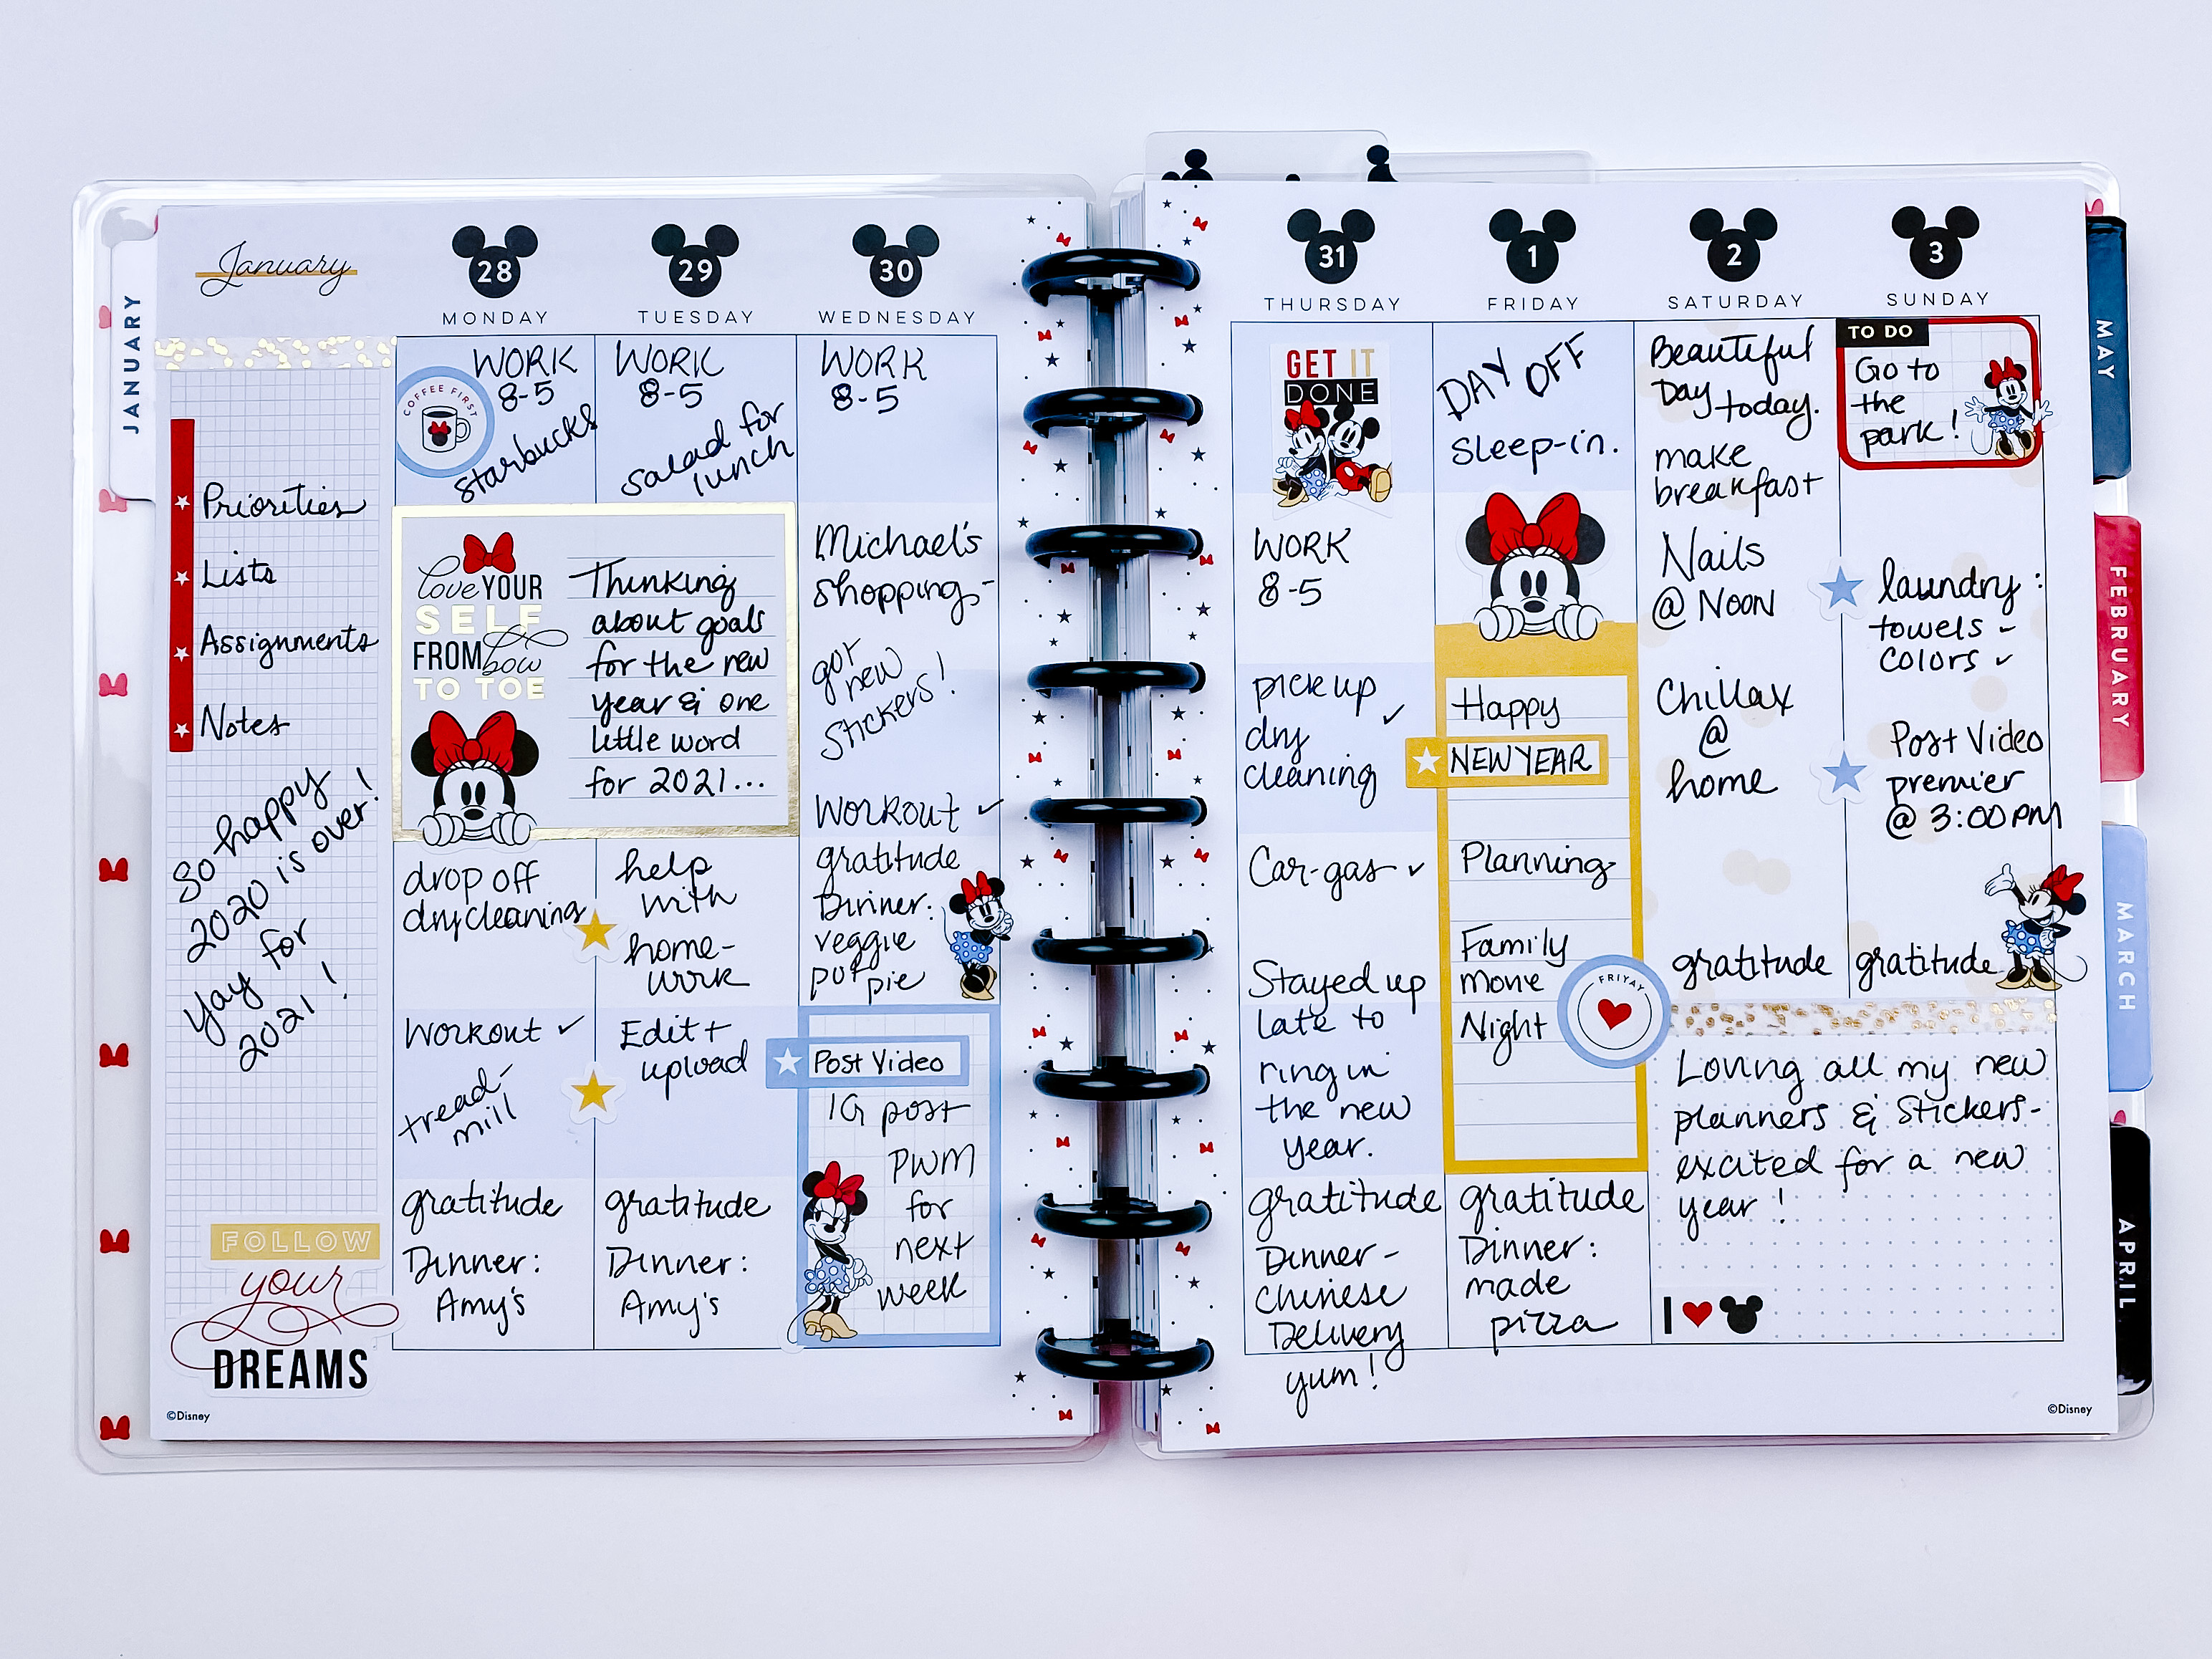 January
JANUARY
Priorities
Lists
Assignments
Notes
So happy
2020 is over!
Yay for
2021!
FOLLOW
your
DREAMS
©Disney
28
MONDAY
COFFEE FIRST
WORK
8-5
Starbucks
love YOUR
SELF
FROM bow
TO TOE
Thinking
about goals
for the new
year & one
little word
for 2021...
drop off
dry cleaning
Workout ✓
tread-
mill
gratitude
Dinner:
Amy's
29
TUESDAY
WORK
8-5
salad for
lunch
help
with
home-
work
Edit +
upload
gratitude
Dinner:
Amy's
30
WEDNESDAY
WORK
8-5
Michael's
shopping-
got
new
stickers!
Workout ✓
gratitude
Dinner:
veggie
pot
pie
Post Video
IG post
PWM
for
next
week
31
THURSDAY
GET IT
DONE
WORK
8-5
pick up
dry ✓
cleaning
Car-gas ✓
Stayed up
late to
ring in
the new
year.
gratitude
Dinner-
Chinese
Delivery
yum!
1
FRIDAY
DAY OFF
sleep-in.
Happy
NEW YEAR
Planning
Family
movie
Night
FRIYAY
gratitude
Dinner:
made
pizza
2
SATURDAY
Beautiful
Day today.
make
breakfast
Nails
@ NOON
Chillax
@
home
gratitude
3
SUNDAY
TO DO
Go to
the
park!
laundry:
towels -
colors ✓
Post Video
premier
@ 3:00 PM
gratitude
Loving all my new
planners & stickers-
excited for a new
year!
I
©Disney
MAY
FEBRUARY
MARCH
APRIL